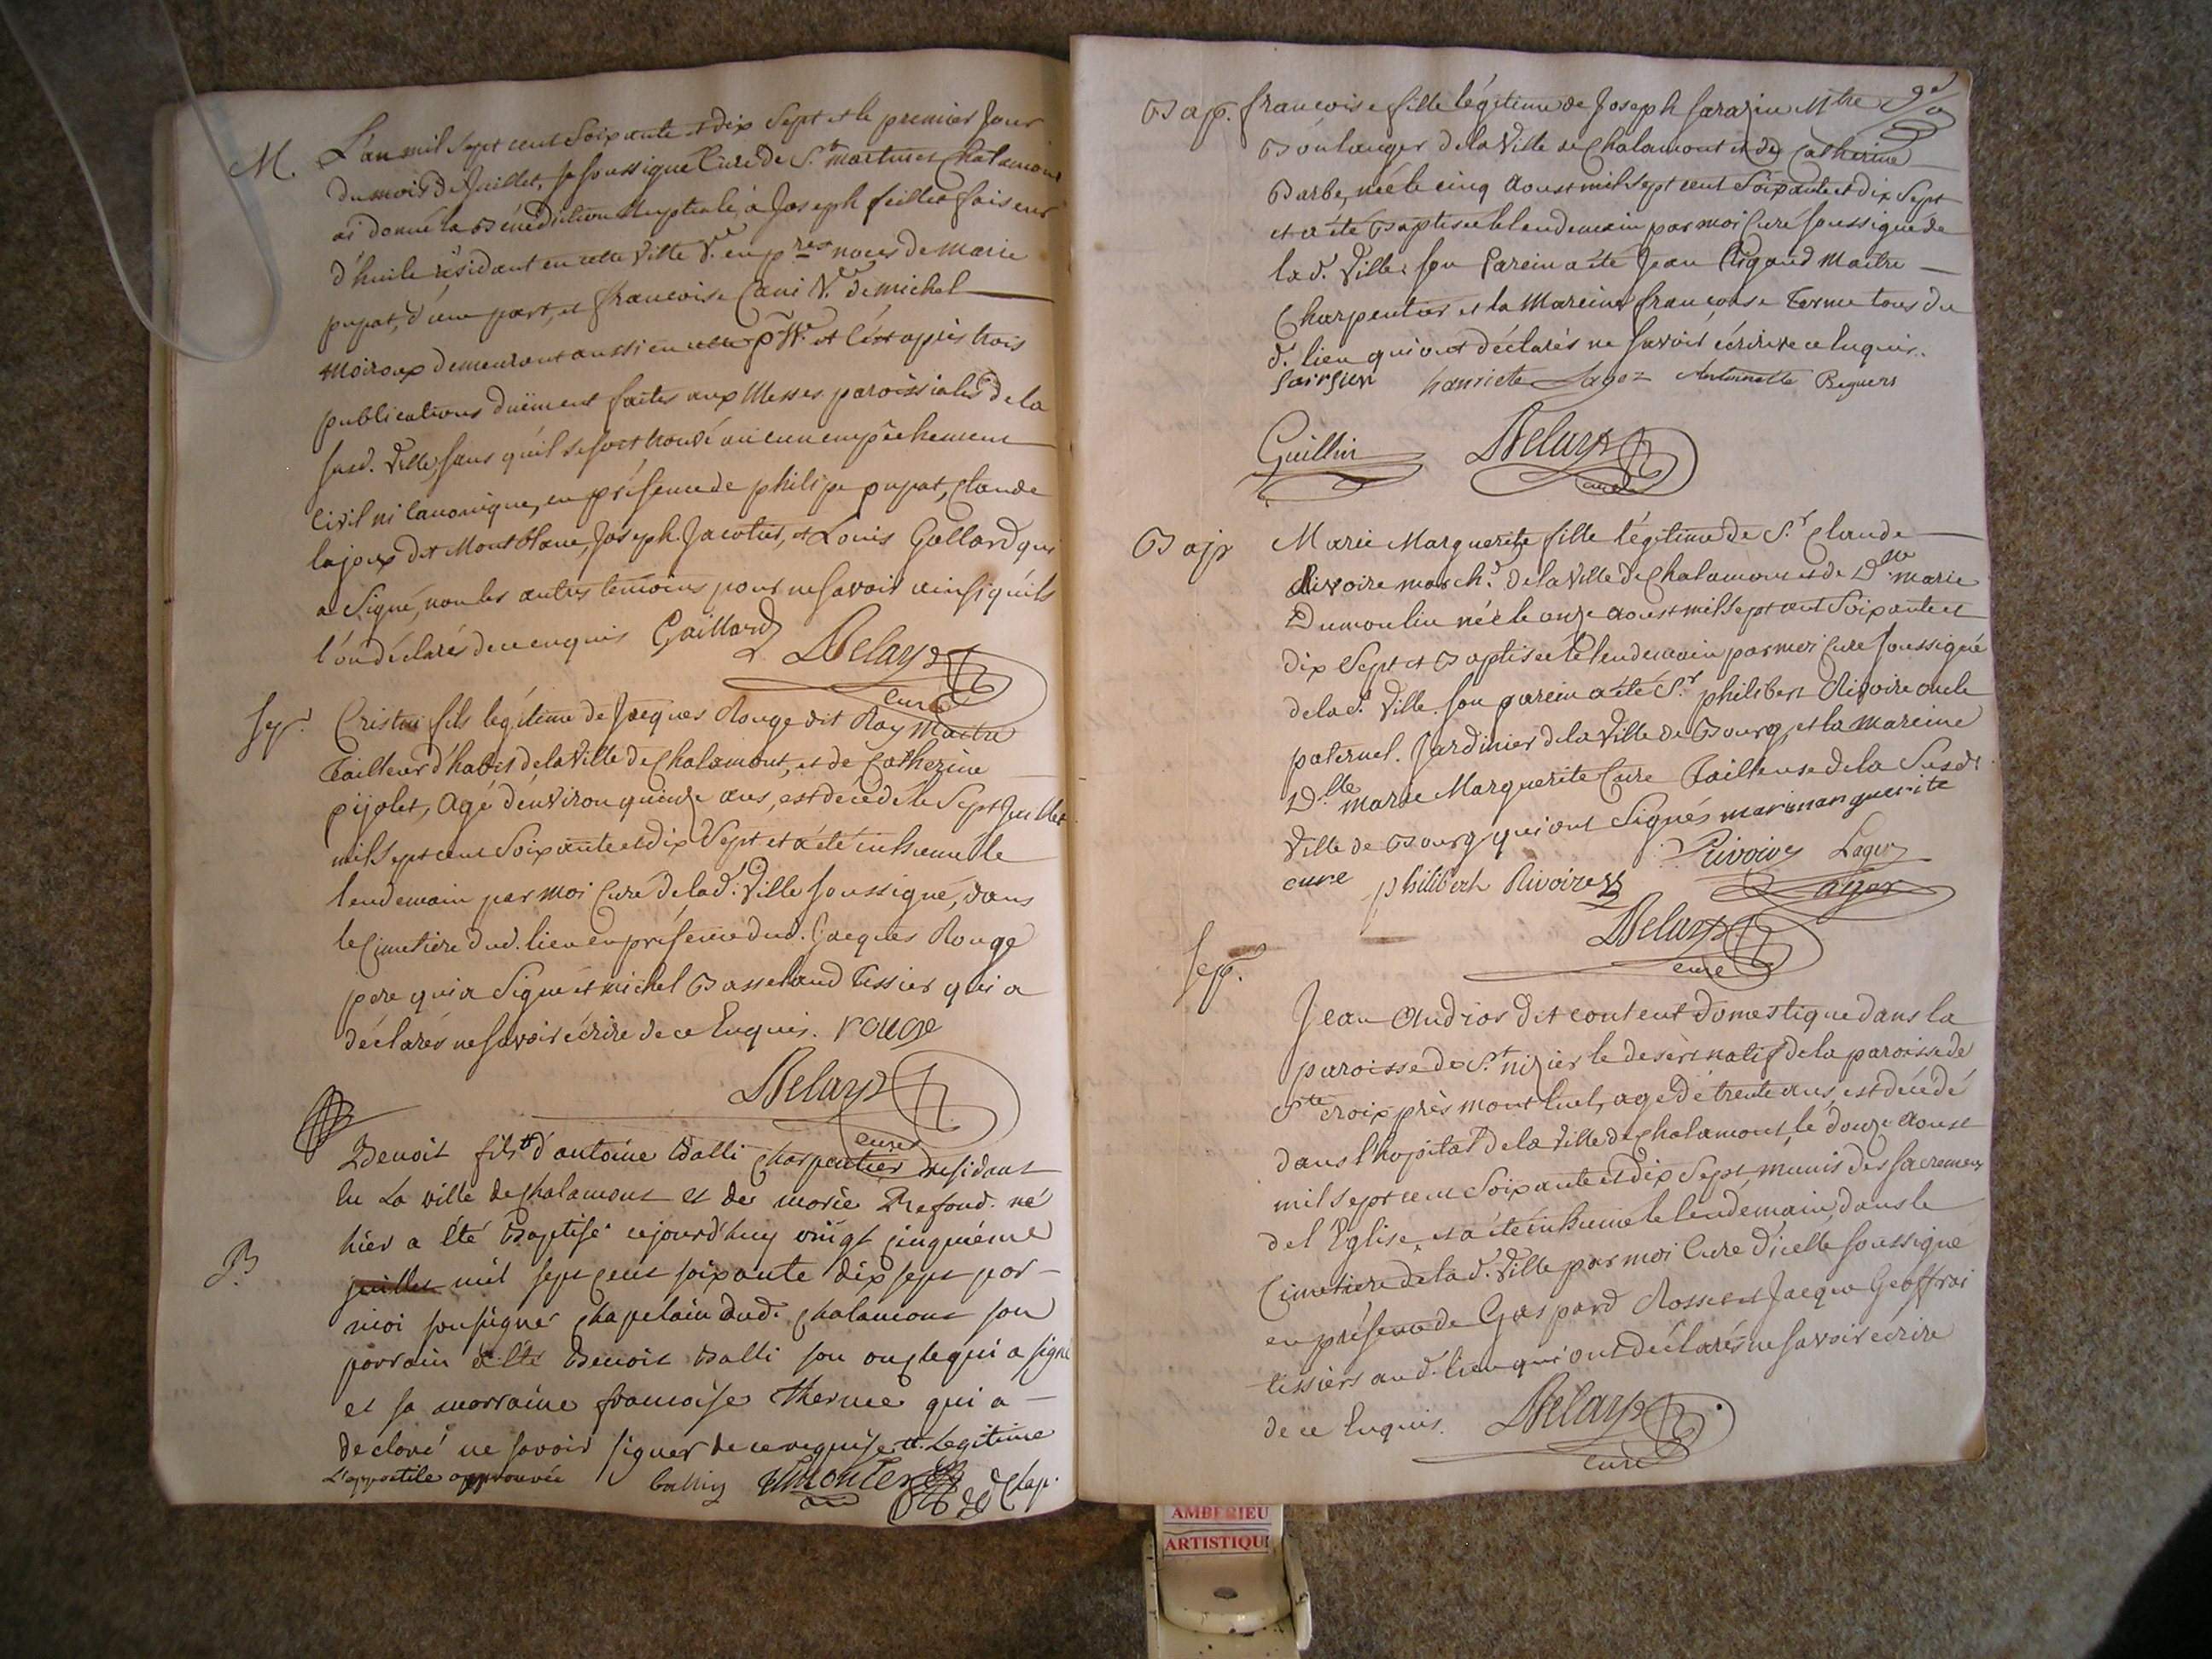 M. L'an mil Sept cent Soixante et dix Sept et le premier Jour
du mois de Juillet, Je soussigné Curé de St. martin et Chalamont
ai donné la Bénédiction Nuptiale, à Joseph feillet faiseur
d'huile résidant en cette Ville V. en pres noces de Marie
pupat, d'une part, et francoise Cani Ve. de michel
Moiroux demeurant aussi en cette p et c'est après trois
publications duëment faites aux Messes paroissiales de la
susd. Ville, sans qu'il se soit trouvé aucun empêchement
Civil ni Canonique, en présence de philipe pupat, Claude
lajoux dit Montblanc, Joseph Jacotier, et Louis Gallard qui
a Signé, non les autres temoins pour ne savoir ainsi quils
l'on déclarés de ce enquis Gaillard Delays
curé
Sep. Cristin fils legitime de Jacques Rouge dit Ray Maitre
Tailleur d'habit de la Ville de Chalamont, et de Catherine
pijolet, agé d'environ quinze ans, est décédé le Sept Juillet
mil Sept cent Soixante et dix Sept et a été inhumé le
lendemain par moi Curé de lad. Ville soussigné, dans
le Cimetiere dud. lieu en présence dud. Jacques Rouge
pere qui a Signé et michel Basseland Tissier qui a
déclarés ne savoir écrire de ce Enquis. rouge
Delays
curé
Benoit fils d'antoine Balli Charpentier residant
en La ville de Chalamont et de marie Prefond. né
hier a été Baptisé cejourd'huy vingt cinquiéme
B. juillet mil sept cent soixante dix sept par
moi soussigné chapelain dud. Chalamont son
parrain a été Benoit Balli son oncle qui a signé
et sa marraine francoise therme qui a
declaré ne savoir signer de ce requise. Legitime
L'appostile approuvée balliy Chap.
Bap. francoise fille légitime de Joseph Sarazin Mtre
Boulanger de la Ville de Chalamont et de Catherine
Barbe, née le cinq Aoust mil Sept cent Soixante et dix Sept
et a été Baptisée le lendemain par moi Curé soussigné de
lad. Ville. son Parein a été Jean Rigaud Maitre
Charpentier et la Mareine francoise Terme tous du
d. lieu qui ont déclarés ne savoir écrire de ce Enquis.
hanriete Lagoz Antoinette Beguers
Guillin Delays
curé
Bap Marie Marguerite fille légitime de Sr. Claude
Rivoire march. de la Ville de Chalamont et de Dlle marie
Dumoulin née le onze aoust mil Sept cent Soixante et
dix Sept et Baptisée le lendemain par moi Curé soussigné
de lad. Ville. son parein a été Sr. philibert Rivoire oncle
paternel. Jardinier de la Ville de Bourg, et la mareine
Dlle marie Marguerite Cure Tailleuse de la Susd.
Ville de Bourg qui ont Signés mari marguerite
cure philibert Rivoire Rivoire Lager
Lager
Delays
curé
Sep.
Jean Andrios dit content Domestique dans la
paroisse de St. nizier le desert natif de la paroisse de
Ste croix près montluel, agé de trente ans, est décédé
dans l'hopital de la Ville de Chalamont, le douze Aoust
mil Sept cent Soixante et dix Sept, munis des sacremens
de l'Église, et a été inhumé le lendemain dans le
Cimetiere de lad. Ville par moi Curé d'icelle soussigné
en présence de Gaspard Rosset et Jacque Geoffrai
tissiers aud. lieu qui ont déclarés ne savoir écrire
de ce Enquis. Delays
curé
AMBERIEU
ARTISTIQU